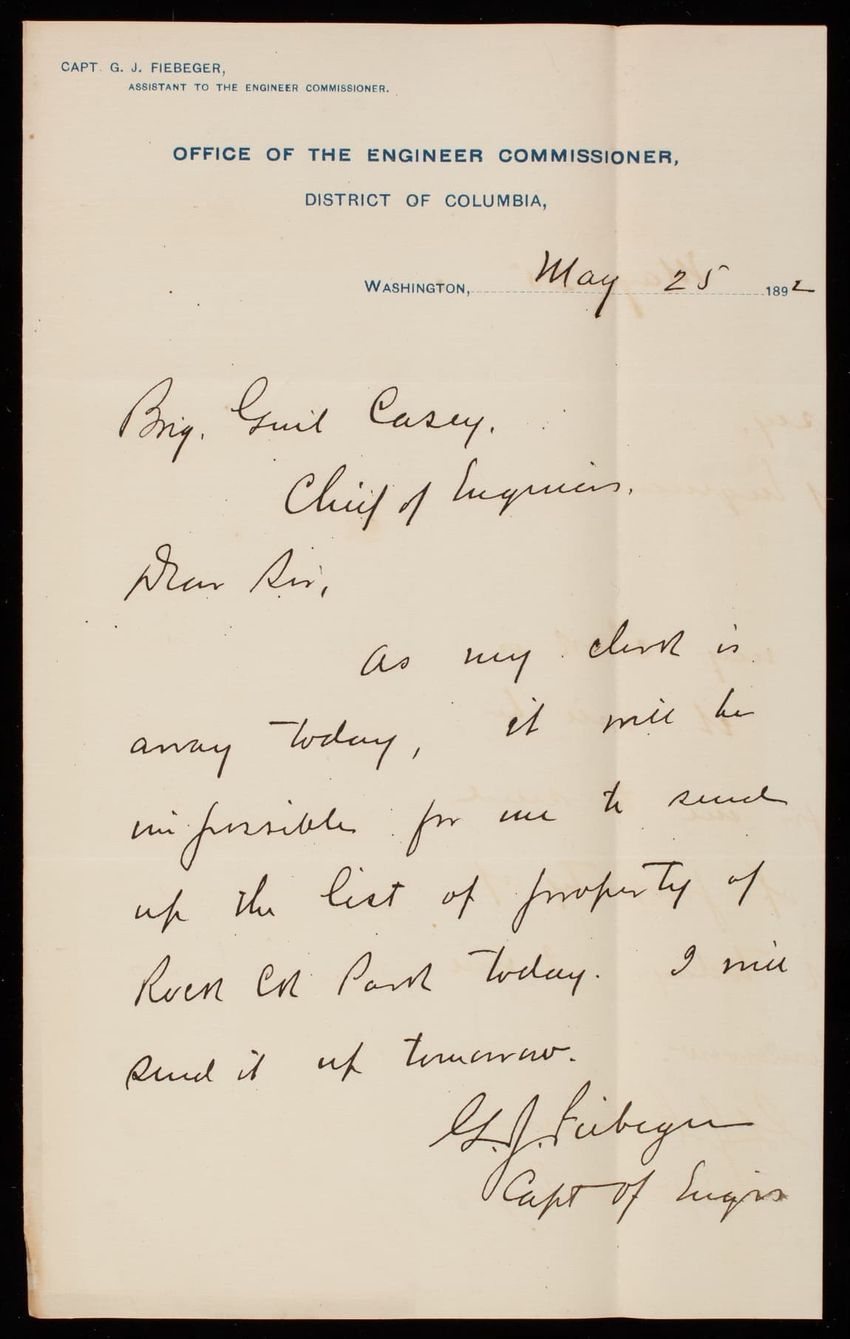 CAPT. G. J. FIEBEGER,
ASSISTANT TO THE ENGINEER COMMISSIONER.
OFFICE OF THE ENGINEER COMMISSIONER,
DISTRICT OF COLUMBIA,
WASHINGTON, May 25 1892
Brig. Genl Casey.
Chief of Engineers.
Dear Sir,
As my clerk is
away today, it will be
impossible for me to send
up the list of property of
Rock Ck Park today. I will
send it up tomorrow.
G. J. Fiebeger
Capt of Engrs